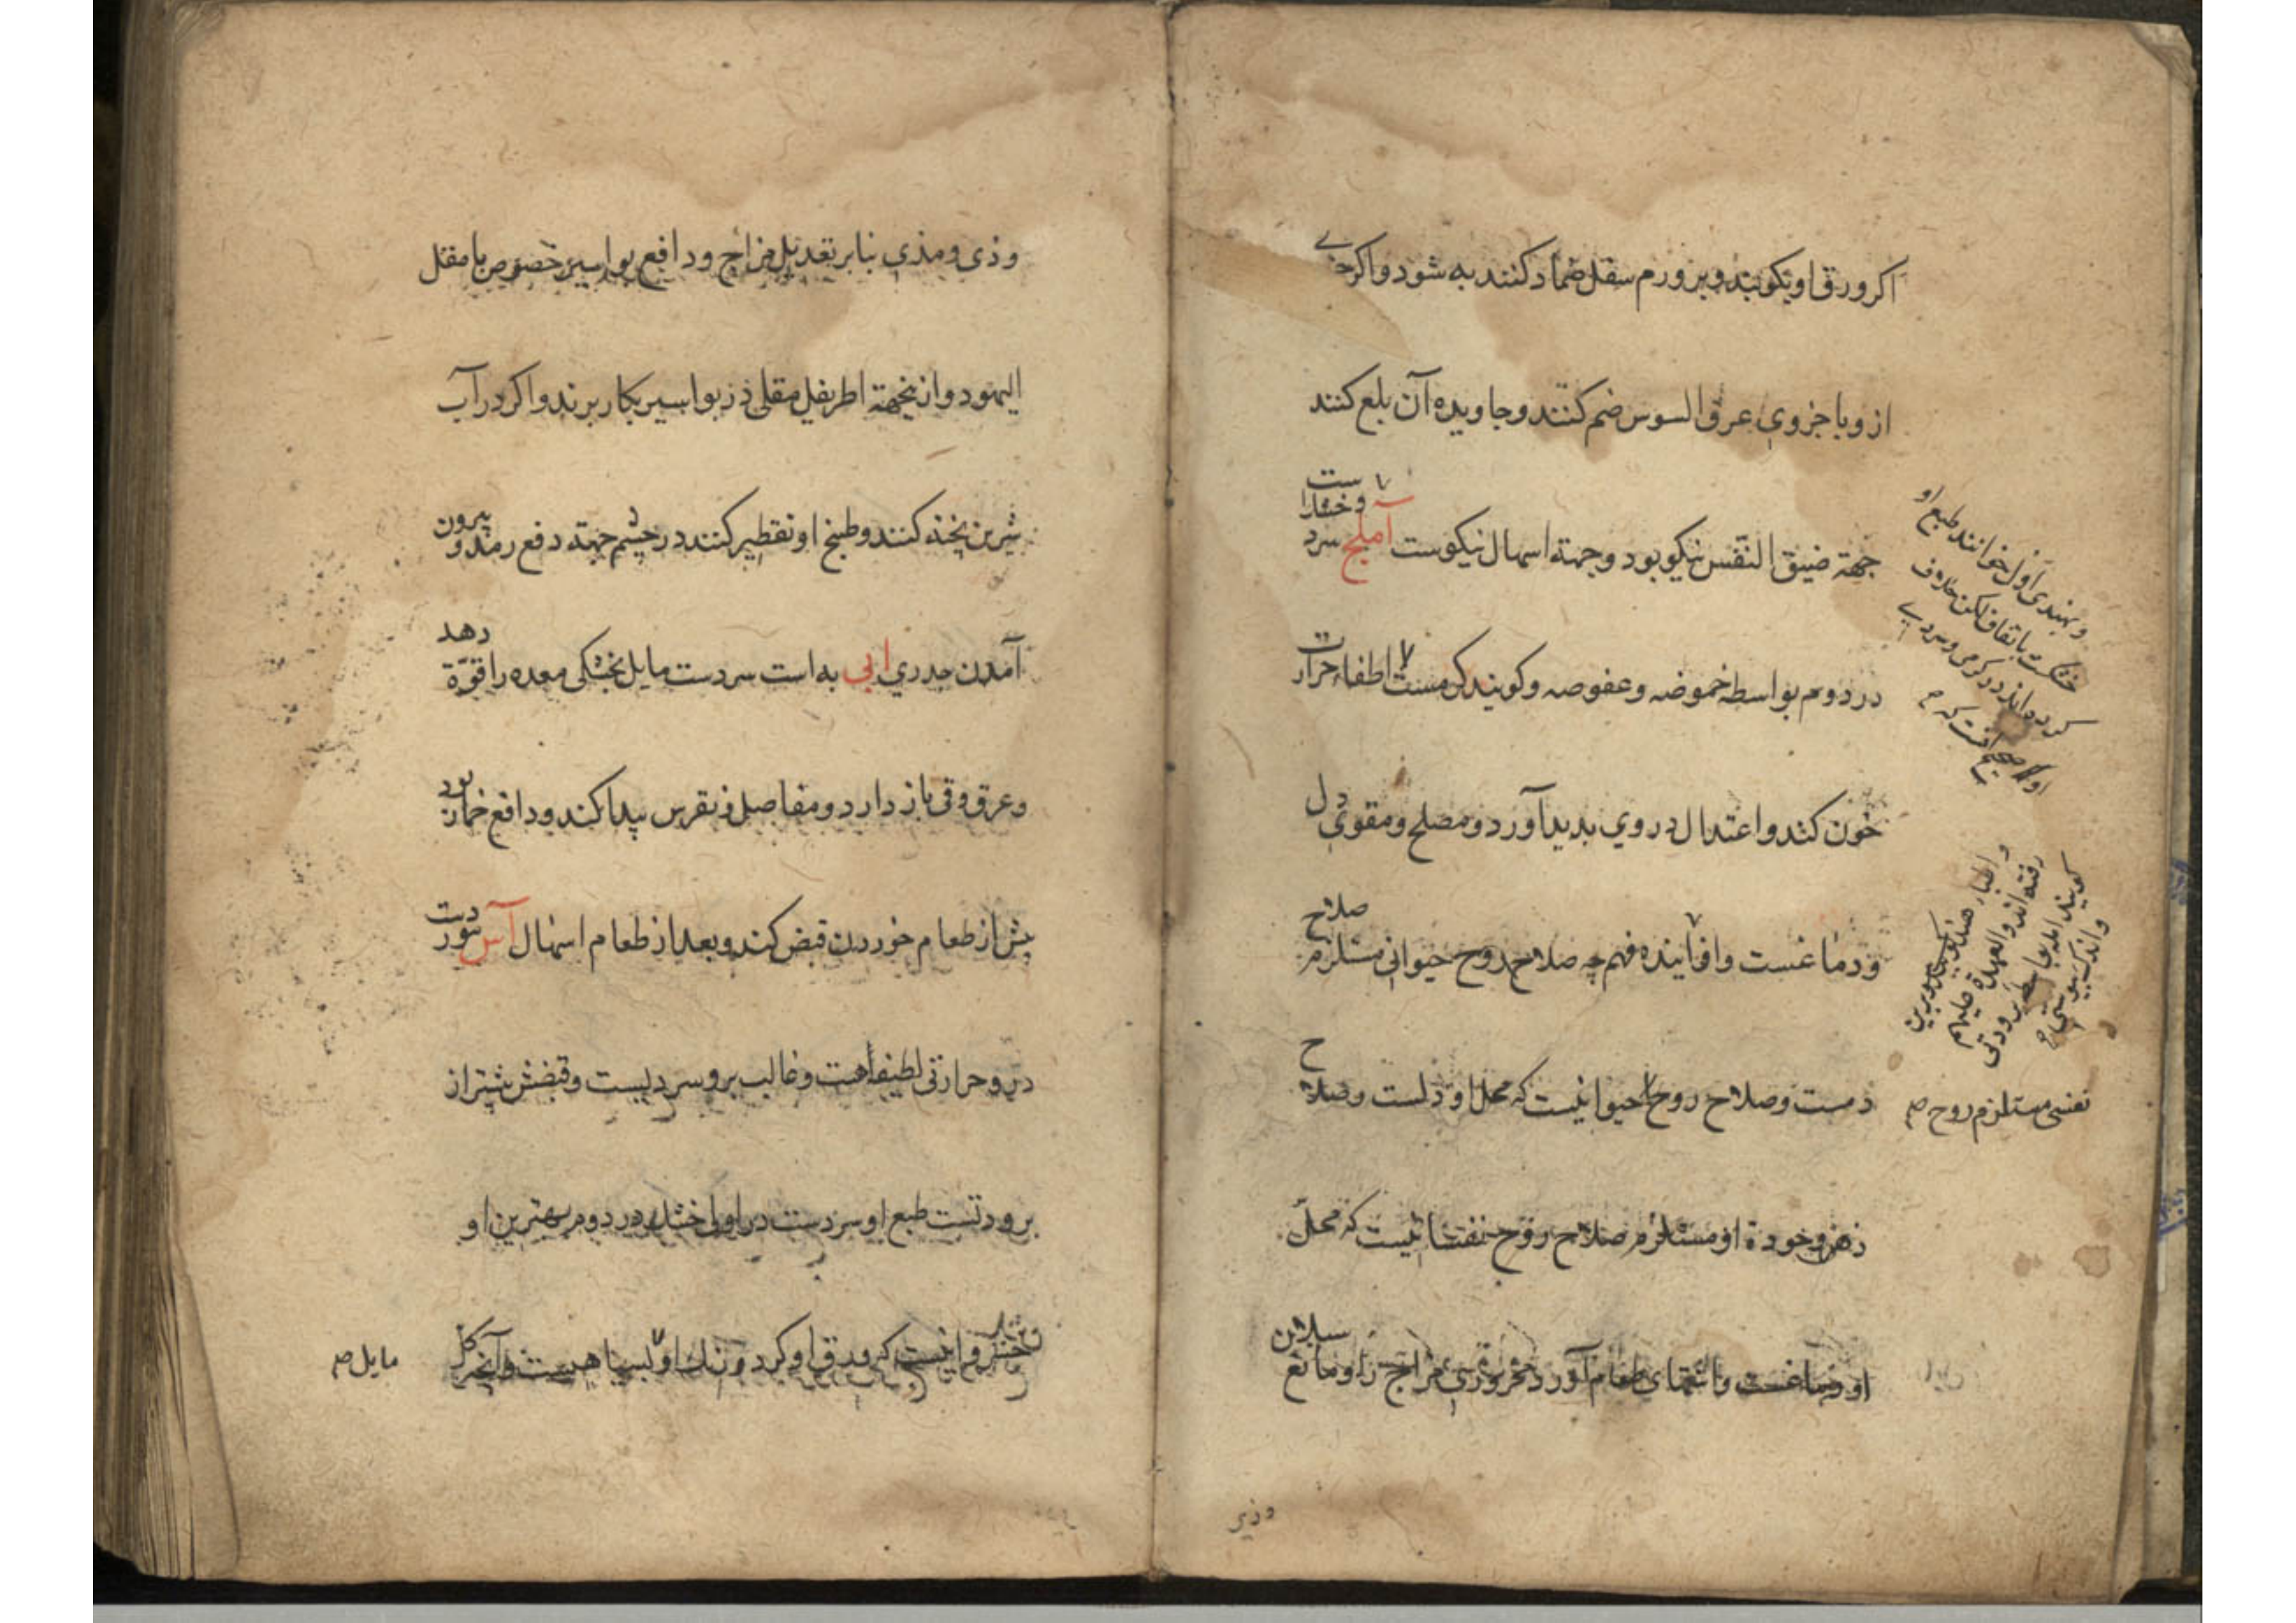 اکر ورق او بکوبند و بر ورم سفل ضماد کنند به شود و اکر جزوی
از و با جزوی عرق السوس ضم کنند و جاویده آن بلع کنند
جهة ضیق النفس نیکو بود و جهة اسهال نیکوست آملج سرد و خشک است
در دوم بواسطه حموضه و عفوصه و کویند کرمست اطفاء حرارت
خون کند و اعتدال در وی بدید آورد و مصلح و مقوی دل
و دماغست و افزاینده فهم چه صلاح روح حیوانی مستلزم صلاح
دمست و صلاح روح حیوانیست که محل او دلست و صلاح
ذهن وجودة او مستلزم صلاح روح نفسانیست که محل
او دماغست و اشتهای طعام آورد محروری مزاج را و مانع سیلان
و بهندی آنوله خوانند طبع او
خشکست باتفاق لکن خلاف
کرده اند در کرمی و سردی
و اطباء هند
رفته اند والعهدة علیهم
کویند بواسطه برودتی
نفسی مستلزم روح صح
وذی
وذی و مذی بنا بر تعدیل مزاج و دافع بواسیر خصوص با مقل
الیهود و ازینجهة اطریفل مقلی در بواسیر بکار برند و اکر در آب
شیرین پخته کنند و طبیخ او تقطیر کنند در چشم جهة دفع رمد و بیرون
آمدن جدری ابی به است سردست مایل بخشکی معده را قوة دهد
و عرق و قی باز دارد و مفاصل و نقرس پیدا کند و دافع خمار بود
پیش از طعام خوردن قبض کند و بعد از طعام اسهال آس مورد است
در و حرارتی لطیف است و غالب برو سردیست و قبضش بیشتر از
برودتست طبع او سردست در اول خشک در دوم بهترین او
خسروانیست که ورق او کرد و رنک او بسیاهیست و آنچه کل
مایل صح